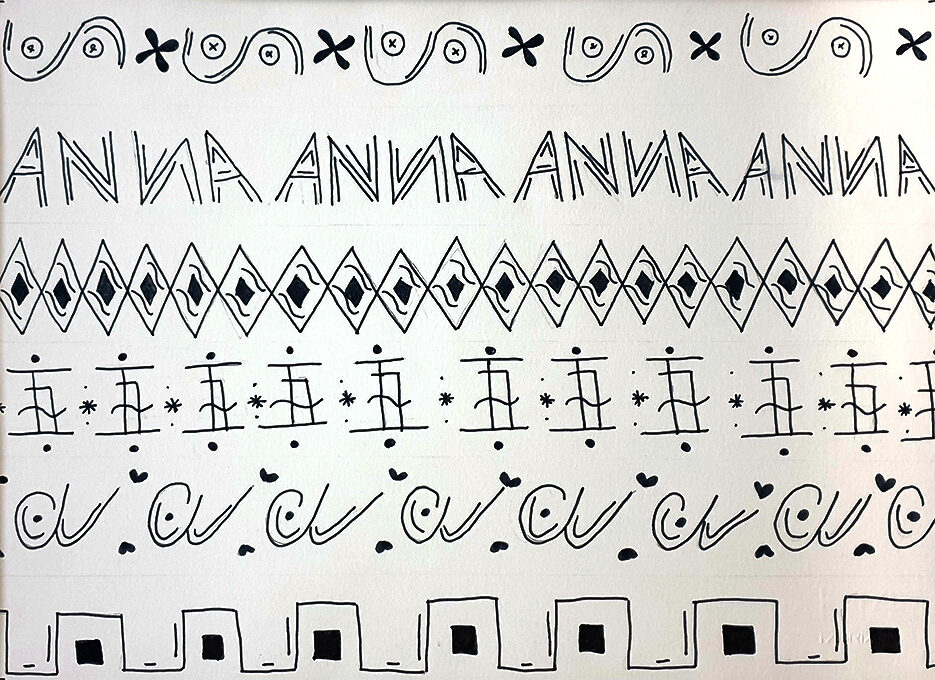 ANNA ANNA ANNA ANNA